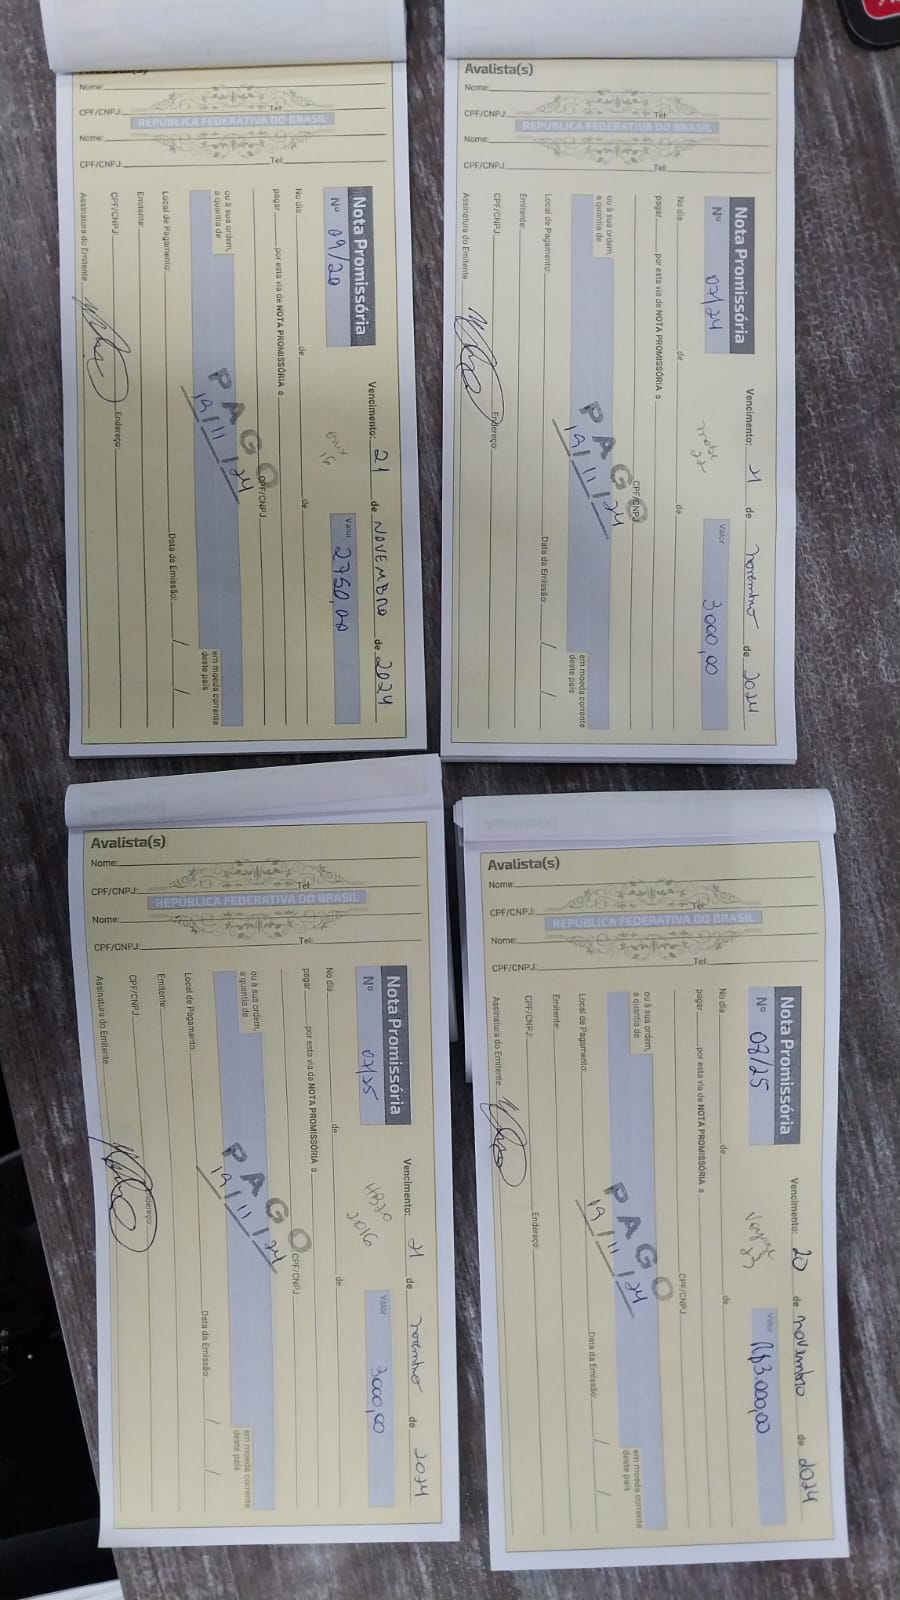 Avalista(s)
Nome:
CPF/CNPJ: Tel:
REPÚBLICA FEDERATIVA DO BRASIL
Nome:
CPF/CNPJ: Tel:
Nota Promissória
Vencimento: 21 de NOVEMBRO de 2024
Nº 09/20
Valor 2750,00
No dia de de
pagar por esta via de NOTA PROMISSÓRIA a
CPF/CNPJ
ou à sua ordem,
a quantia de
PAGO
19/11/24
em moeda corrente
deste país
Local de Pagamento: Data da Emissão: / /
Emitente:
CPF/CNPJ: Endereço:
Assinatura do Emitente
Avalista(s)
Nome:
CPF/CNPJ: Tel:
REPÚBLICA FEDERATIVA DO BRASIL
Nome:
CPF/CNPJ: Tel:
Nota Promissória
Vencimento: 21 de novembro de 2024
Nº 07/24
Valor 3000,00
No dia de de
pagar por esta via de NOTA PROMISSÓRIA a
CPF/CNPJ
ou à sua ordem,
a quantia de
PAGO
19/11/24
em moeda corrente
deste país
Local de Pagamento: Data da Emissão: / /
Emitente:
CPF/CNPJ: Endereço:
Assinatura do Emitente
Avalista(s)
Nome:
CPF/CNPJ: Tel:
REPÚBLICA FEDERATIVA DO BRASIL
Nome:
CPF/CNPJ: Tel:
Nota Promissória
Vencimento: 21 de novembro de 2024
Nº 07/25
HB20
2016
Valor 3000,00
No dia de de
pagar por esta via de NOTA PROMISSÓRIA a
CPF/CNPJ
ou à sua ordem,
a quantia de
PAGO
19/11/24
em moeda corrente
deste país
Local de Pagamento: Data da Emissão: / /
Emitente:
CPF/CNPJ: Endereço:
Assinatura do Emitente
Avalista(s)
Nome:
CPF/CNPJ: Tel:
REPÚBLICA FEDERATIVA DO BRASIL
Nome:
CPF/CNPJ: Tel:
Nota Promissória
Vencimento: 20 de novembro de 2024
Nº 07/25
Voyage
23
Valor R$3.000,00
No dia de de
pagar por esta via de NOTA PROMISSÓRIA a
CPF/CNPJ
ou à sua ordem,
a quantia de
PAGO
19/11/24
em moeda corrente
deste país
Local de Pagamento: Data da Emissão: / /
Emitente:
CPF/CNPJ: Endereço:
Assinatura do Emitente